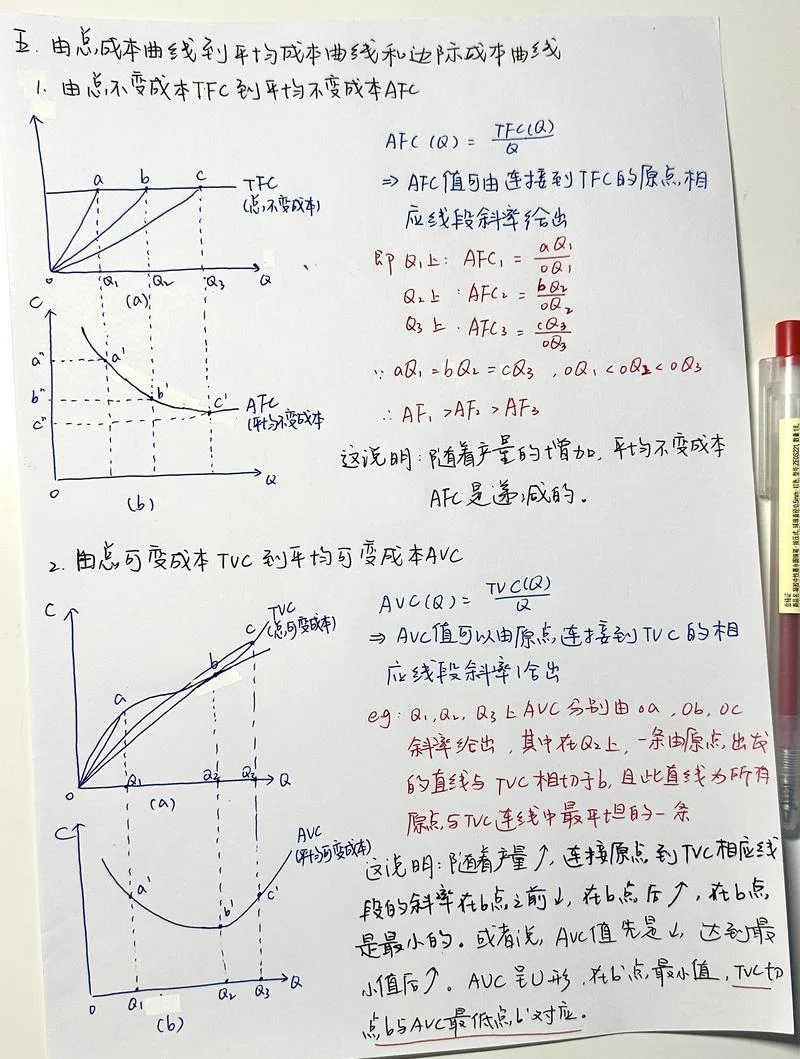 五. 由总成本曲线到平均成本曲线和边际成本曲线
1. 由总不变成本TFC到平均不变成本AFC
a b c TFC
(总不变成本)
0 Q₁ Q₂ Q₃ Q
(a)
AFC(Q) = TFC(Q)/Q
⇒ AFC值可由连接到TFC的原点相
应线段斜率给出
即 Q₁上: AFC₁ = aQ₁/oQ₁
Q₂上: AFC₂ = bQ₂/oQ₂
Q₃上: AFC₃ = cQ₃/oQ₃
∵ aQ₁=bQ₂=cQ₃, oQ₁<oQ₂<oQ₃
∴ AF₁>AF₂>AF₃
C
a" a'
b" b'
c" c' AFC
(平均不变成本
0 Q
(b)
这说明:随着产量的增加,平均不变成本
AFC是递减的。
2. 由总可变成本TVC到平均可变成本AVC
C TVC
(总可变成本)
a b c
0 Q₁ Q₂ Q₃ Q
(a)
AVC(Q) = TVC(Q)/Q
⇒ AVC值可以由原点连接到TVC的相
应线段斜率给出
eg: Q₁,Q₂,Q₃上AVC分别由oa,Ob,OC
斜率给出,其中在Q₂上,一条由原点出发
的直线与TVC相切于b,且此直线为所有
原点与TVC连线中最平坦的一条
C AVC
(平均可变成本)
a' b' c'
0 Q₁ Q₂ Q₃ Q
(b)
这说明:随着产量↑,连接原点到TVC相应线
段的斜率在b点之前↓,在b点后↑,在b点
是最小的。或者说,AVC值先是↓,达到最
小值后↑。AVC呈U形,在b'点最小值,TVC切
点b与AVC最低点b'对应。
合格证